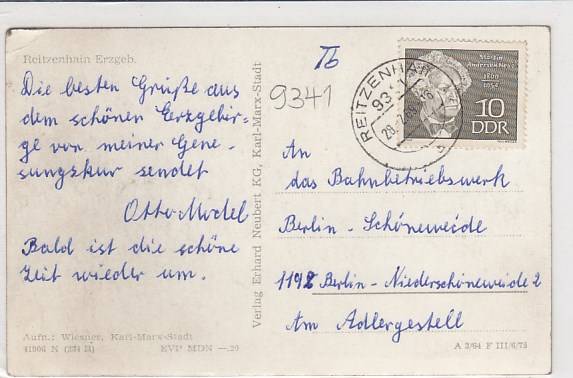 Reitzenhain Erzgeb.
Die besten Grüße aus
dem schönen Erzgebir-
ge von meiner Gene-
sungskur sendet
Otto Model
Bald ist die schöne
Zeit wieder um.
Aufn.: Wiesner, Karl-Marx-Stadt
41006 N (234 B) EVP MDN —.20
Verlag Erhard Neubert KG, Karl-Marx-Stadt
Tb
9341
REITZENHAIN
934
Martin
Andersen Nexö
1869
1954
10
DDR
An
das Bahnbetriebswerk
Berlin - Schöneweide
1192 Berlin - Niederschöneweide 2
Am Adlergestell
A 3/64 F III/6/73